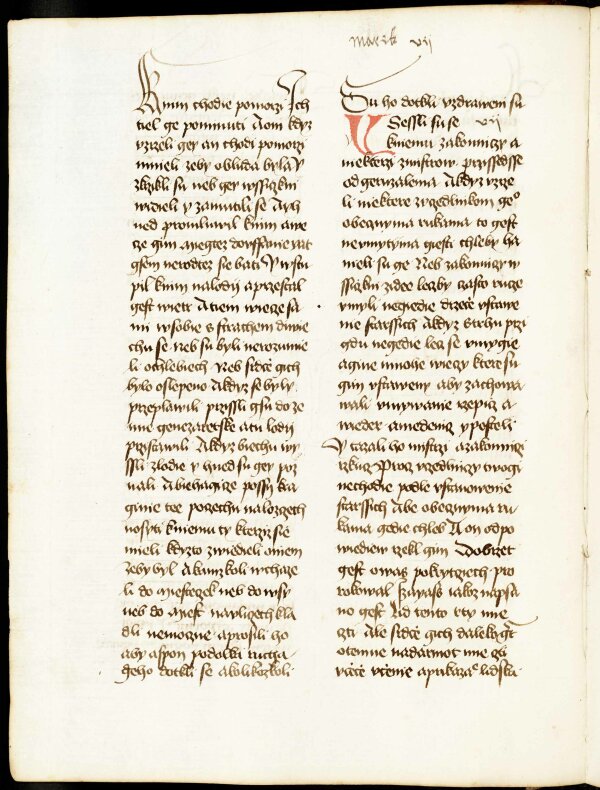 marek vij
k nim chodie pomorzi Ich
tiel ge pominuti A oni kdyz
vzrzeli gey an chodi pomorzi
mnieli zeby obluda byla y
zkrikli su neb gey wssiczkni
widieli y zamutili se A yh
ned promluwil knim a wece
ge gim Nerodtez se bati y wstu
pil knim nalodij a przestal
gest wietr A tiem wieze sa
mi w sobie s strachem diwie
chu se neb su byli nerozumie
li ochlebiech Neb srdce gich
bylo oslepeno A kdyz se byly
przeplawili przissli gsu do ze
mie genezaretske a tu lodij
przistawili A kdyz biechu wy
ssli zlodie y hned su gey poz
nali A biehagicze possij kra
ginie tee poczechu nalozczech
nositi kniemu ty kterzij sie
mieli kdyzto zwiedieli oniem
zeby byl A kamzkoli wchaze
li do miesteczek neb do wsy
neb do miest na vliczech kla
dli nemoczne a prosili ho
aby aspon podolka rucha
geho dotkli se a kolikozkoli
Su ho dotkli vzdraweni su
Sessli su se vij
kniemu zakonniczy a
niekterzi zmistrow przissedsse
od geruzalema A kdyz vzrze
li niektere zvczedlnikow geho
obecznyma rukama to gest
nemytyma giesti chleby ha
nieli su ge Neb zakonniczy y
wssiczkni zidee leczby czasto rucze
vmyli negiedie drziece vstawe
nie starssich A kdyz s trhu przi
gdu negedie lecz se vmygie
a gine mnohe wieczy ktere su
gim vstaweny aby zachowa
wali vmywanie czepicz a
wieder a miedenicz y posteli
Y tazali ho mistrzi a zakonniczi
rzkucz Procz vczedlniczy twogi
nechodie podle vstanowenie
starssich Ale obecznyma ru
kama gedie chleb A on odpo
wiediew rzekl gim Dobrzet
gest o was pokrytczech pro
rokowal yzayass iakoz napsa
no gest Lid tento rty mie
czti ale srdce gich daleko gest
otemne nadarmot mie cz